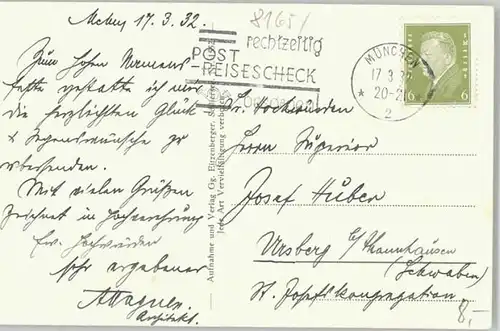 München 17. 3. 32.
8165/
Zum hohen Namens-
feste gestatte ich mir
die herzlichsten Glück
& Segenswünsche zu
übersenden.
Mit vielen Grüßen
zeichnet in Hochverehrung
Euer Hochwürden
sehr ergebener
A. Wagner
Architekt.
rechtzeitig
POST
REISESCHECK
MÜNCHEN
17.3.3
* 20-2
2
6 6
Aufnahme und Verlag Gg. Ettenberger,
Jede Art Vervielfältigung verboten
Sr. Hochwürden
Herrn Superior
Josef Huber
Ursberg b/Thannhausen
(Schwaben)
St. Josefskongregation
8,-